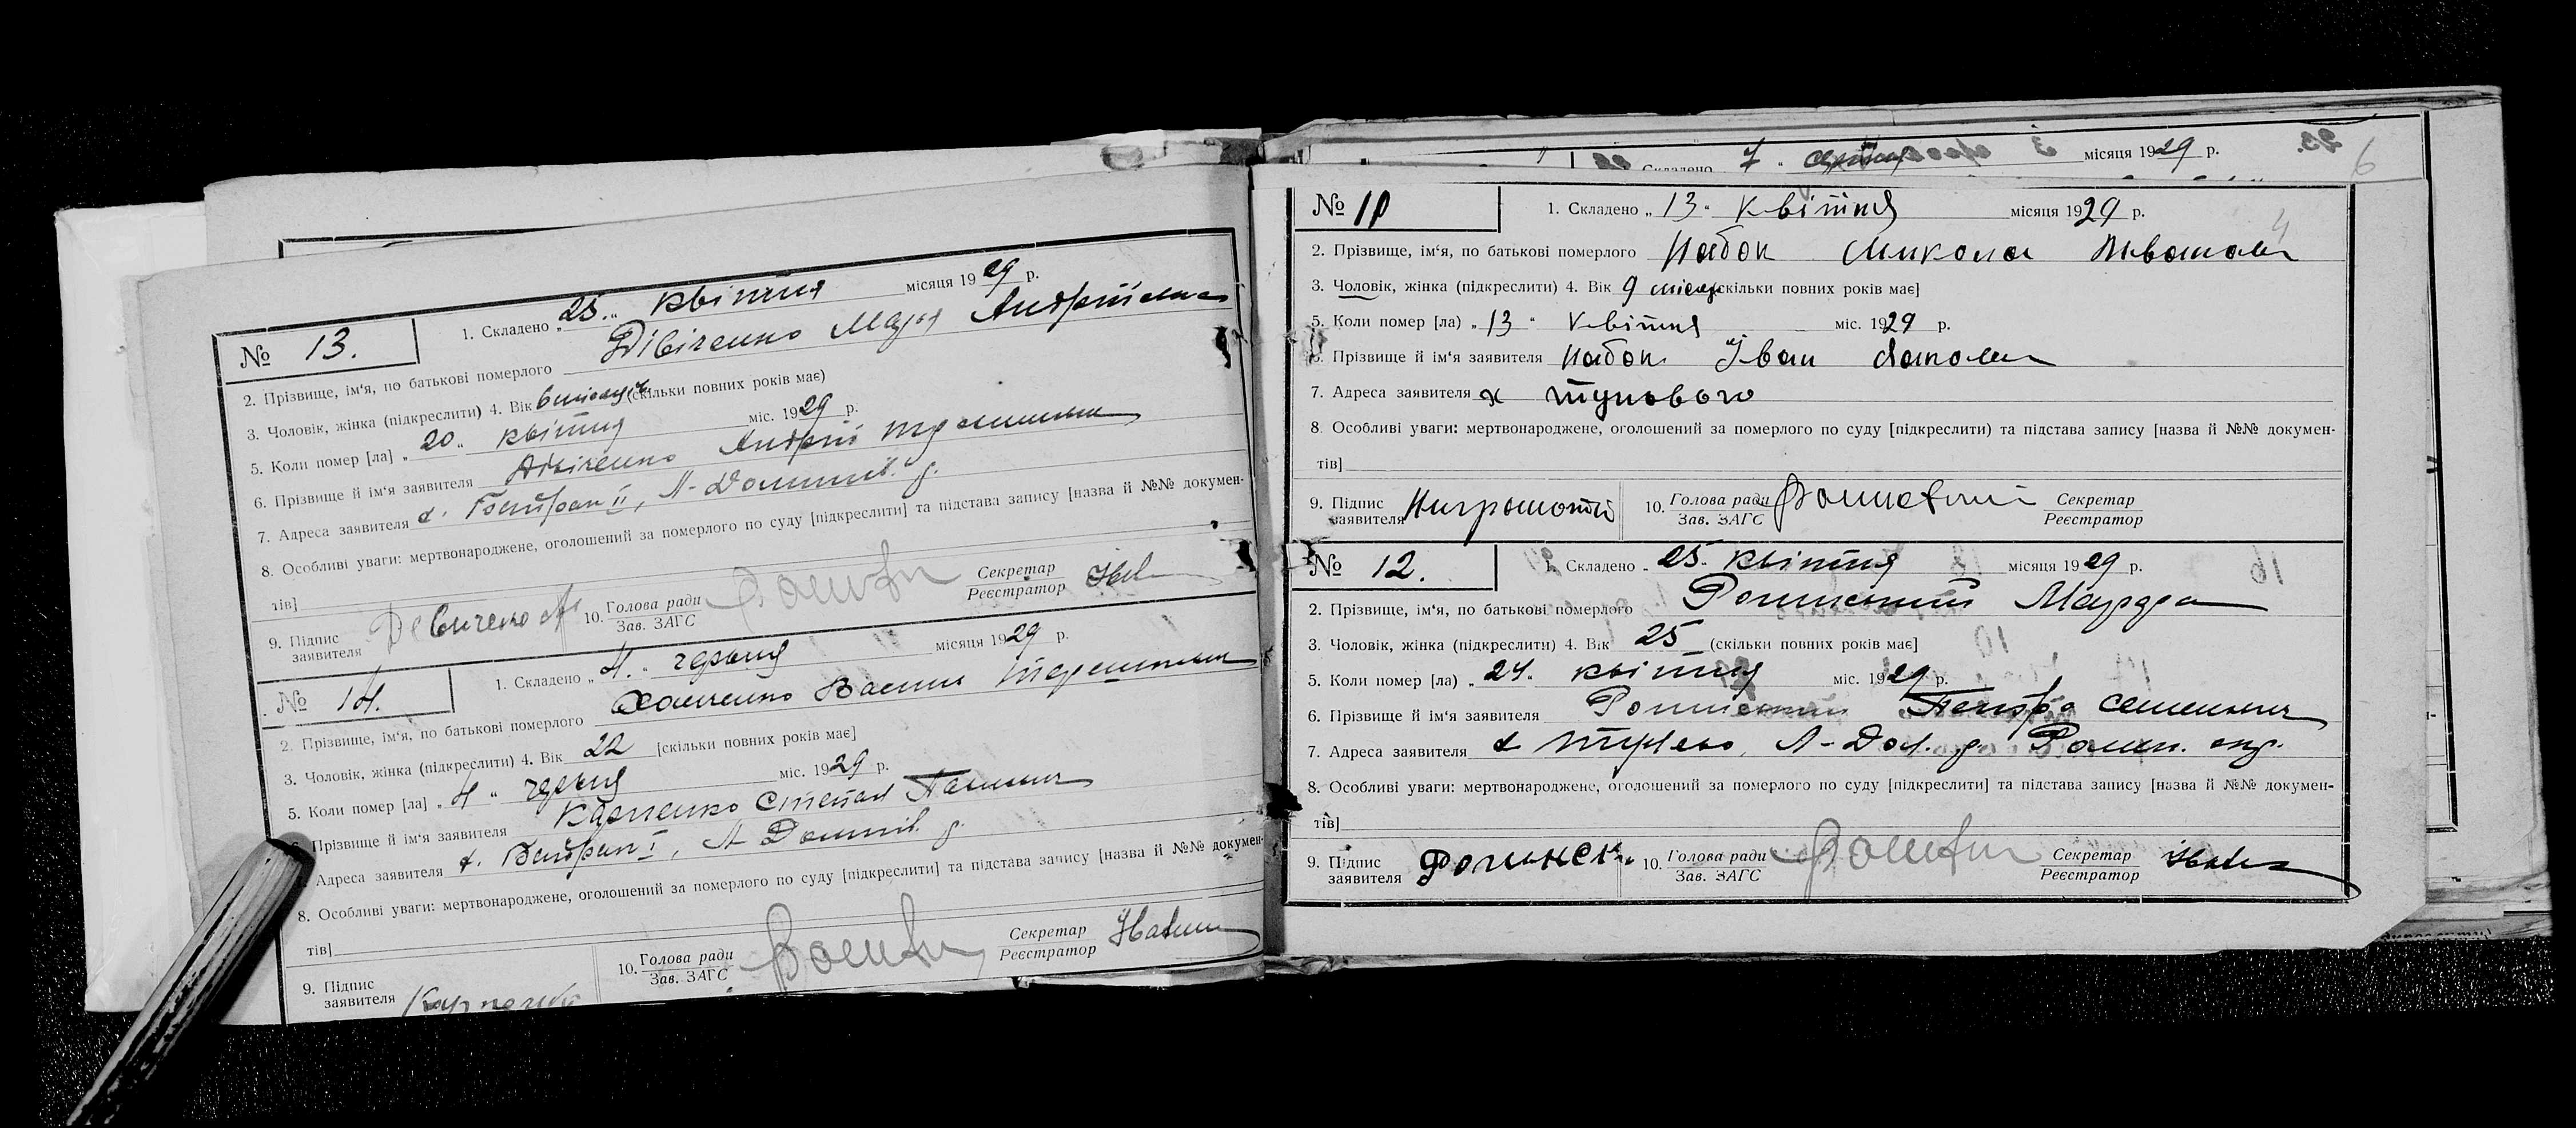 № 13.
1. Складено „ 25. " квітня місяця 1929 р.
2. Прізвище, ім'я, по батькові померлого Дівіченко Марія Андріївна
3. Чоловік, жінка (підкреслити) 4. Вік 6 місяців (скільки повних років має)
5. Коли помер [ла] „ 20 " квітня міс. 1929 р.
6. Прізвище й ім'я заявителя Дівіченко Андрій
7. Адреса заявителя х. Байрак II, Л-Долинів. р.
8. Особливі уваги: мертвонароджене, оголошений за померлого по суду [підкреслити] та підстава запису [назва й №№ докумен-
тів]
9. Підпис заявителя Девиченко 10. Голова ради Зав. ЗАГС Секретар Реєстратор
№ 14.
1. Складено „ 4. " червня місяця 1929 р.
2. Прізвище, ім'я, по батькові померлого Василь
3. Чоловік, жінка (підкреслити) 4. Вік 22 [скільки повних років має]
5. Коли помер [ла] „ 4 " червня міс. 1929 р.
6. Прізвище й ім'я заявителя Карпенко Степан
Адреса заявителя х. Байрак I, Л Долинів. р.
8. Особливі уваги: мертвонароджене, оголошений за померлого по суду [підкреслити] та підстава запису [назва й №№ докумен-
тів]
9. Підпис заявителя 10. Голова ради Зав. ЗАГС Секретар Реєстратор
Складено 7 " місяця 1929 р.
6
№ 11
1. Складено „ 13 " квітня місяця 1929 р.
4
2. Прізвище, ім'я, по батькові померлого Набок Микола Іванович
3. Чоловік, жінка (підкреслити) 4. Вік 9 місяц скільки повних років має]
5. Коли помер (ла) „ 13 " квітня міс. 1929 р.
6. Прізвище й ім'я заявителя Набок Іван
7. Адреса заявителя х
8. Особливі уваги: мертвонароджене, оголошений за померлого по суду [підкреслити) та підстава запису [назва й №№ докумен-
тів]
9. Підпис заявителя Ниграмотній 10. Голова ради Зав. ЗАГС Секретар Реєстратор
№ 12.
1. Складено „ 25 " квітня місяця 1929 р.
2. Прізвище, ім'я, по батькові померлого
3. Чоловік, жінка (підкреслити) 4. Вік 25 (скільки повних років має]
5. Коли помер [ла) „ 24 " квітня міс. 1929 р.
6. Прізвище й ім'я заявителя Петро Семенович
7. Адреса заявителя х Л-Дол. р. Ромен. окр.
8. Особливі уваги: мертвонароджене, оголошений за померлого по суду [підкреслити] та підстава запису [назва й №№ докумен-
тів]
9. Підпис заявителя 10. Голова ради Зав. ЗАГС Секретар Реєстратор